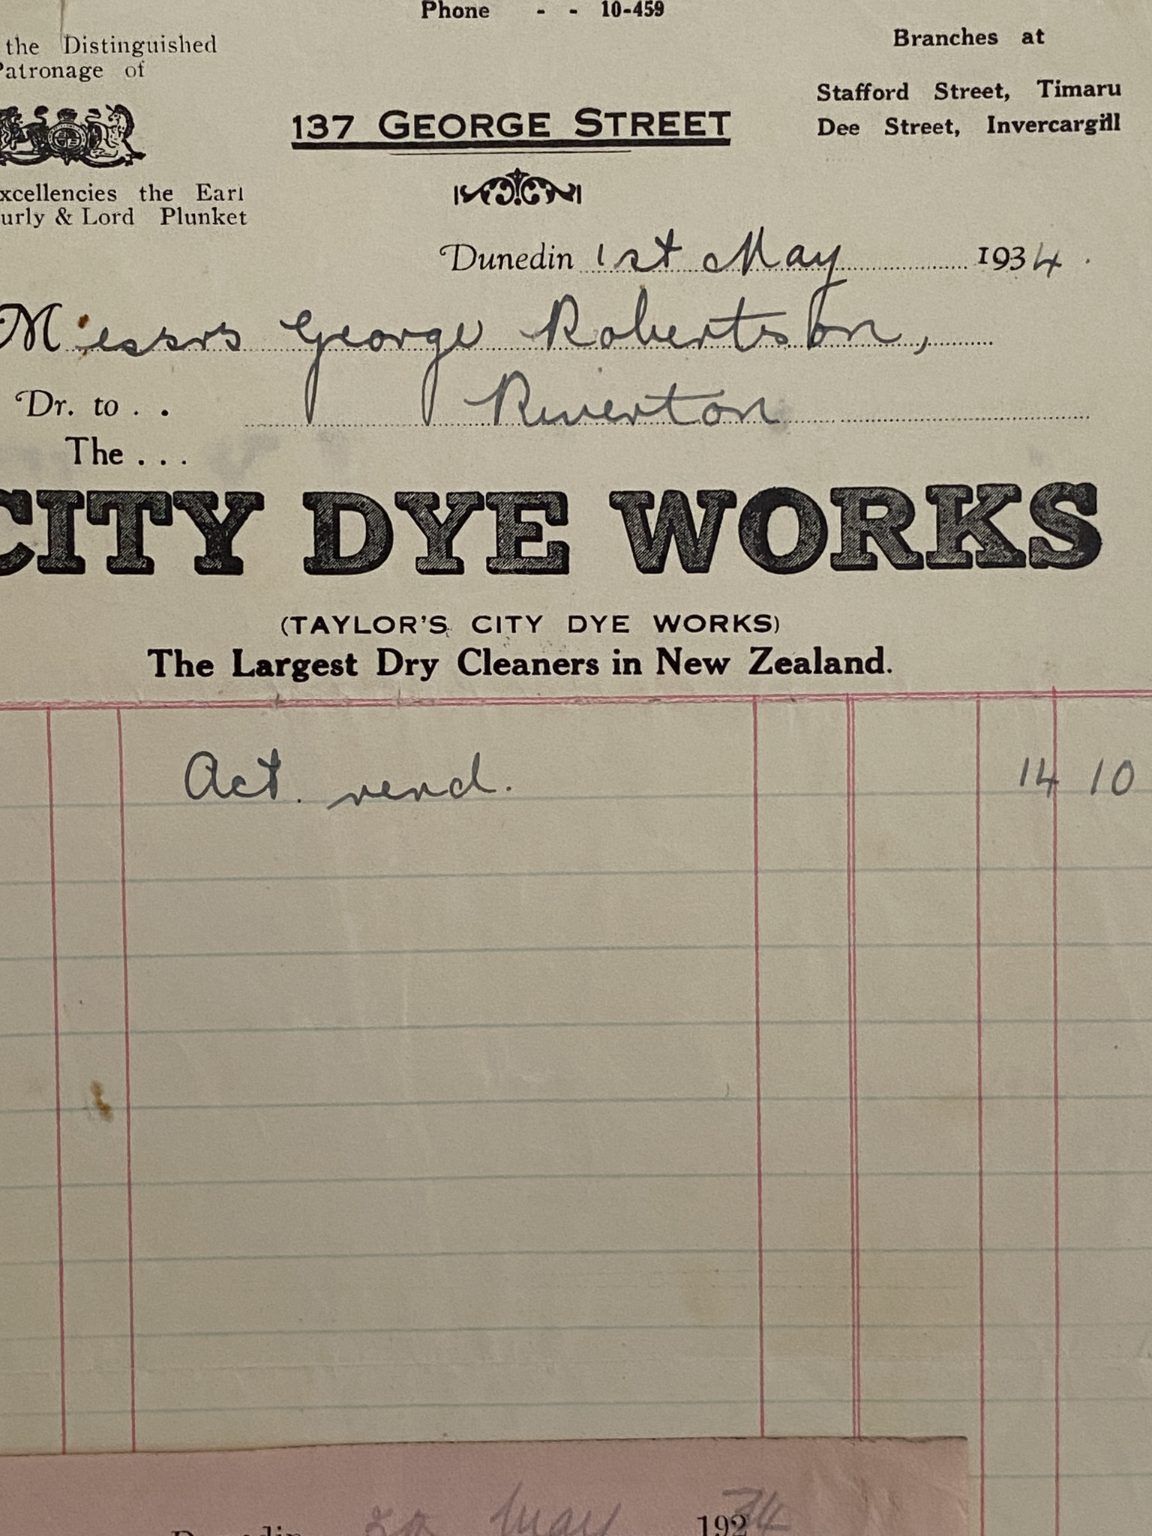 Phone - - 10-459
the Distinguished
Patronage of
Branches at
Stafford Street, Timaru
Dee Street, Invercargill
137 GEORGE STREET
xcellencies the Earl
urly & Lord Plunket
Dunedin 1st May 1934.
Messrs George Robertson,
Dr. to . . Riverton
The . . .
CITY DYE WORKS
(TAYLOR'S CITY DYE WORKS)
The Largest Dry Cleaners in New Zealand.
Act. rend. 14 10
Dunedin May 19234